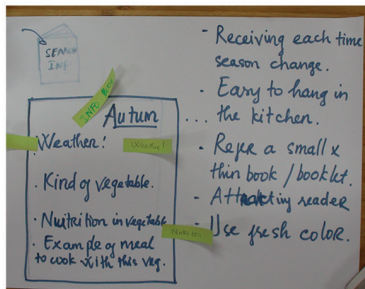 SEARCH
INFO BOX
Autum
- Weather!
Weather!
- Kind of vegetable.
- Nuitrition in vegetable
- Example of meal
to cook with this veg.
- Receiving each time
season change.
- Easy to hang in
... the kitchen.
- a small x
thin book / booklet.
- Attracting reader
- Use fresh color.